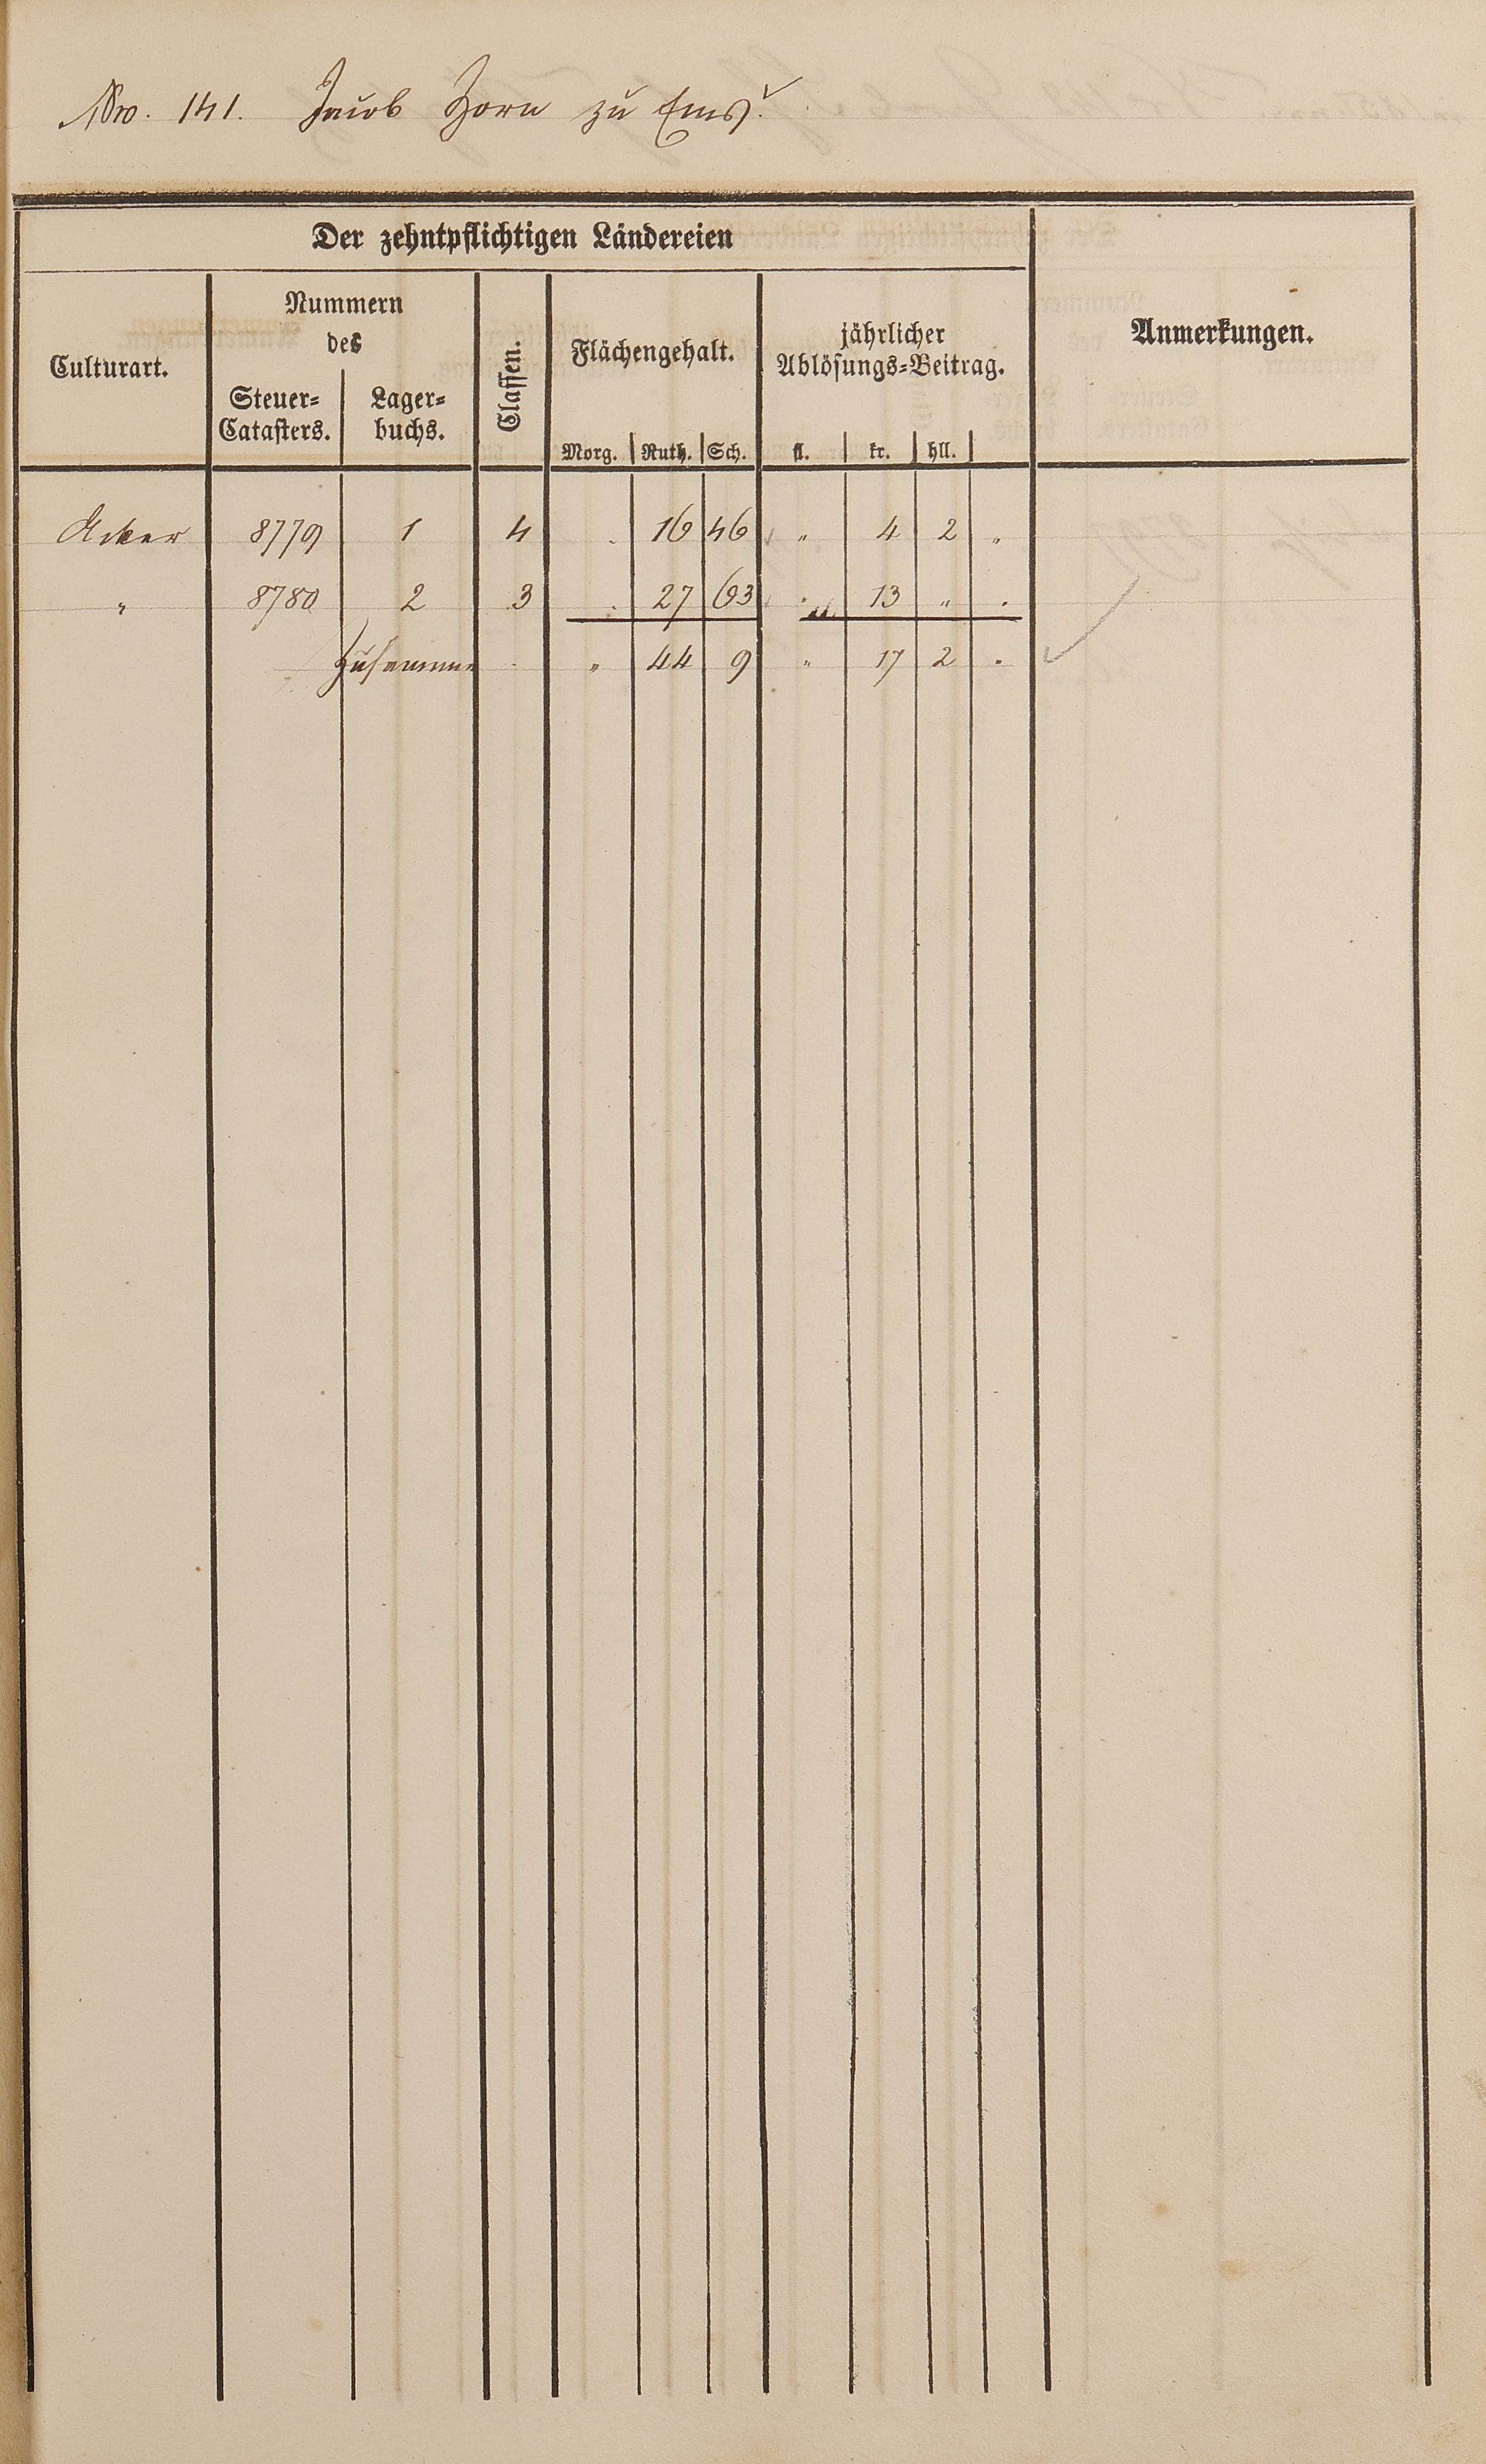 Nro. 141. Jacob Horn zu Ems.
Der zehntpflichtigen Ländereien
Culturart. Nummern des Steuer=Catasters. Lager=buchs. Classen. Flächengehalt. Morg. Ruth. Sch. jährlicher Ablösungs=Beitrag. fl. kr. hll. Anmerkungen.
Acker 8779 1 4 . 16 46 " 4 2 "
" 8780 2 3 . 27 63 . 13 " .
Zusammen . " 44 9 " 17 2 .